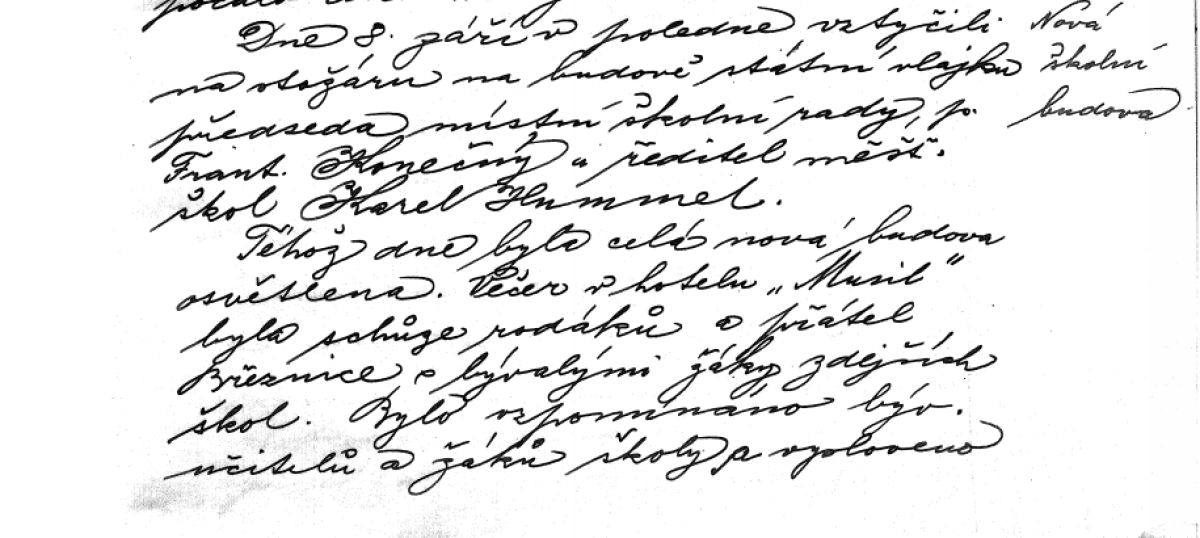 Dne 8. září v poledne vztyčili
Nová
na stožáru na budově státní vlajku
školní
předseda místní školní rady, p.
budova
Frant. Konečný a ředitel měšť.
škol Karel Hummel.
Téhož dne byla celá nová budova
osvětlena. Večer v hotelu „Musil“
byla schůze rodáků a přátel
Březnice s bývalými žáky zdejších
škol. Bylo vzpomínáno býv.
učitelů a žáků školy a vysloveno